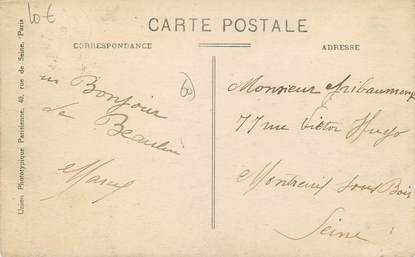 10 €
CARTE POSTALE
CORRESPONDANCE
ADRESSE
Union Phototypique Parisienne, 49, rue de Seine, Paris
un Bonjour
de Beaulieu
Marcel
Monsieur
77 rue Victor Hugo
Montreuil sous Bois
Seine